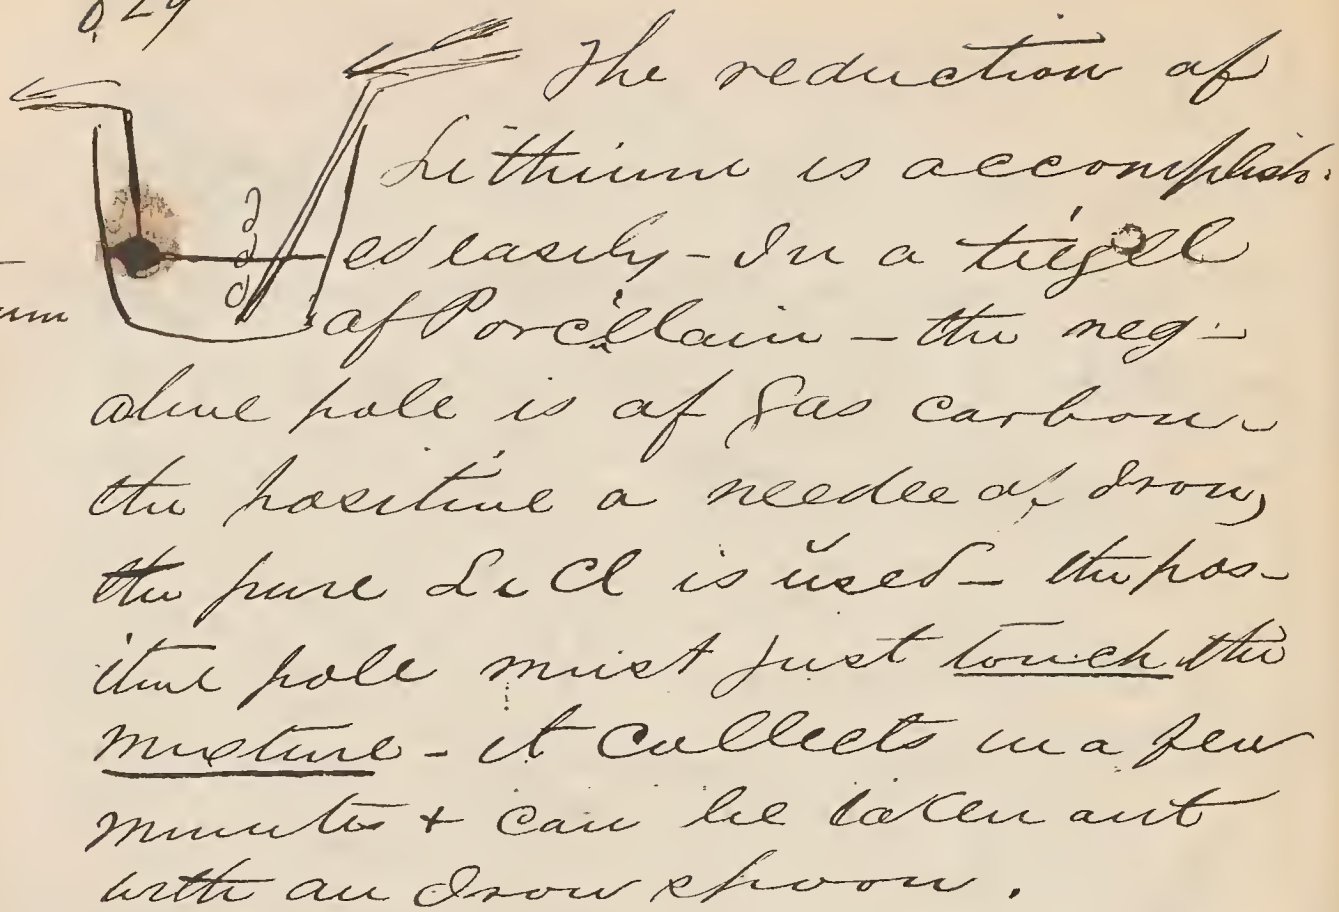 0,29
The reduction of
Lithium is accomplish-
ed easily - In a tiegel
of Porcellain - the neg-
ative pole is of gas carbon -
the positive a needle of Iron,
the pure LiCl is used - the pos-
itive pole must just touch the
mixture - it collects in a few
minutes + can be taken out
with an Iron spoon.